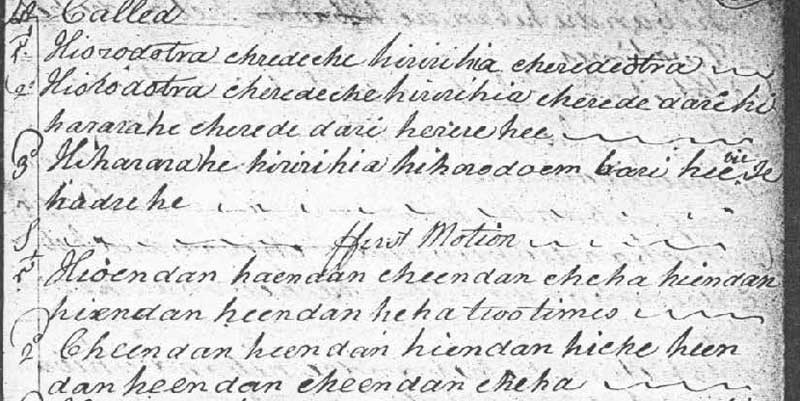 A Called
1t Hiorodotra chredeche hiririhia cherededotra
2d Hiorodotra cheredeche hiririhia cherede darihi
hararahe cherede dari herere hee
3d Hihararahe hiririhia hihorodoem bari hee
hadrehe
ffirst Motion
1t Hioendan haendan cheendan cheha hiendan
hiendan heendan heha two times
2d Cheendan hiendan hiendan hiche heen
dan heendan cheendan cheha